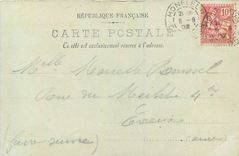 RÉPUBLIQUE FRANÇAISE
HONFLEUR
10
CARTE POSTALE
Ce côté est exclusivement réservé à l'adresse.
Melle Marcelle Roussel
Rue du Meilet 4
Evreux
(faire suivre) (Eure)